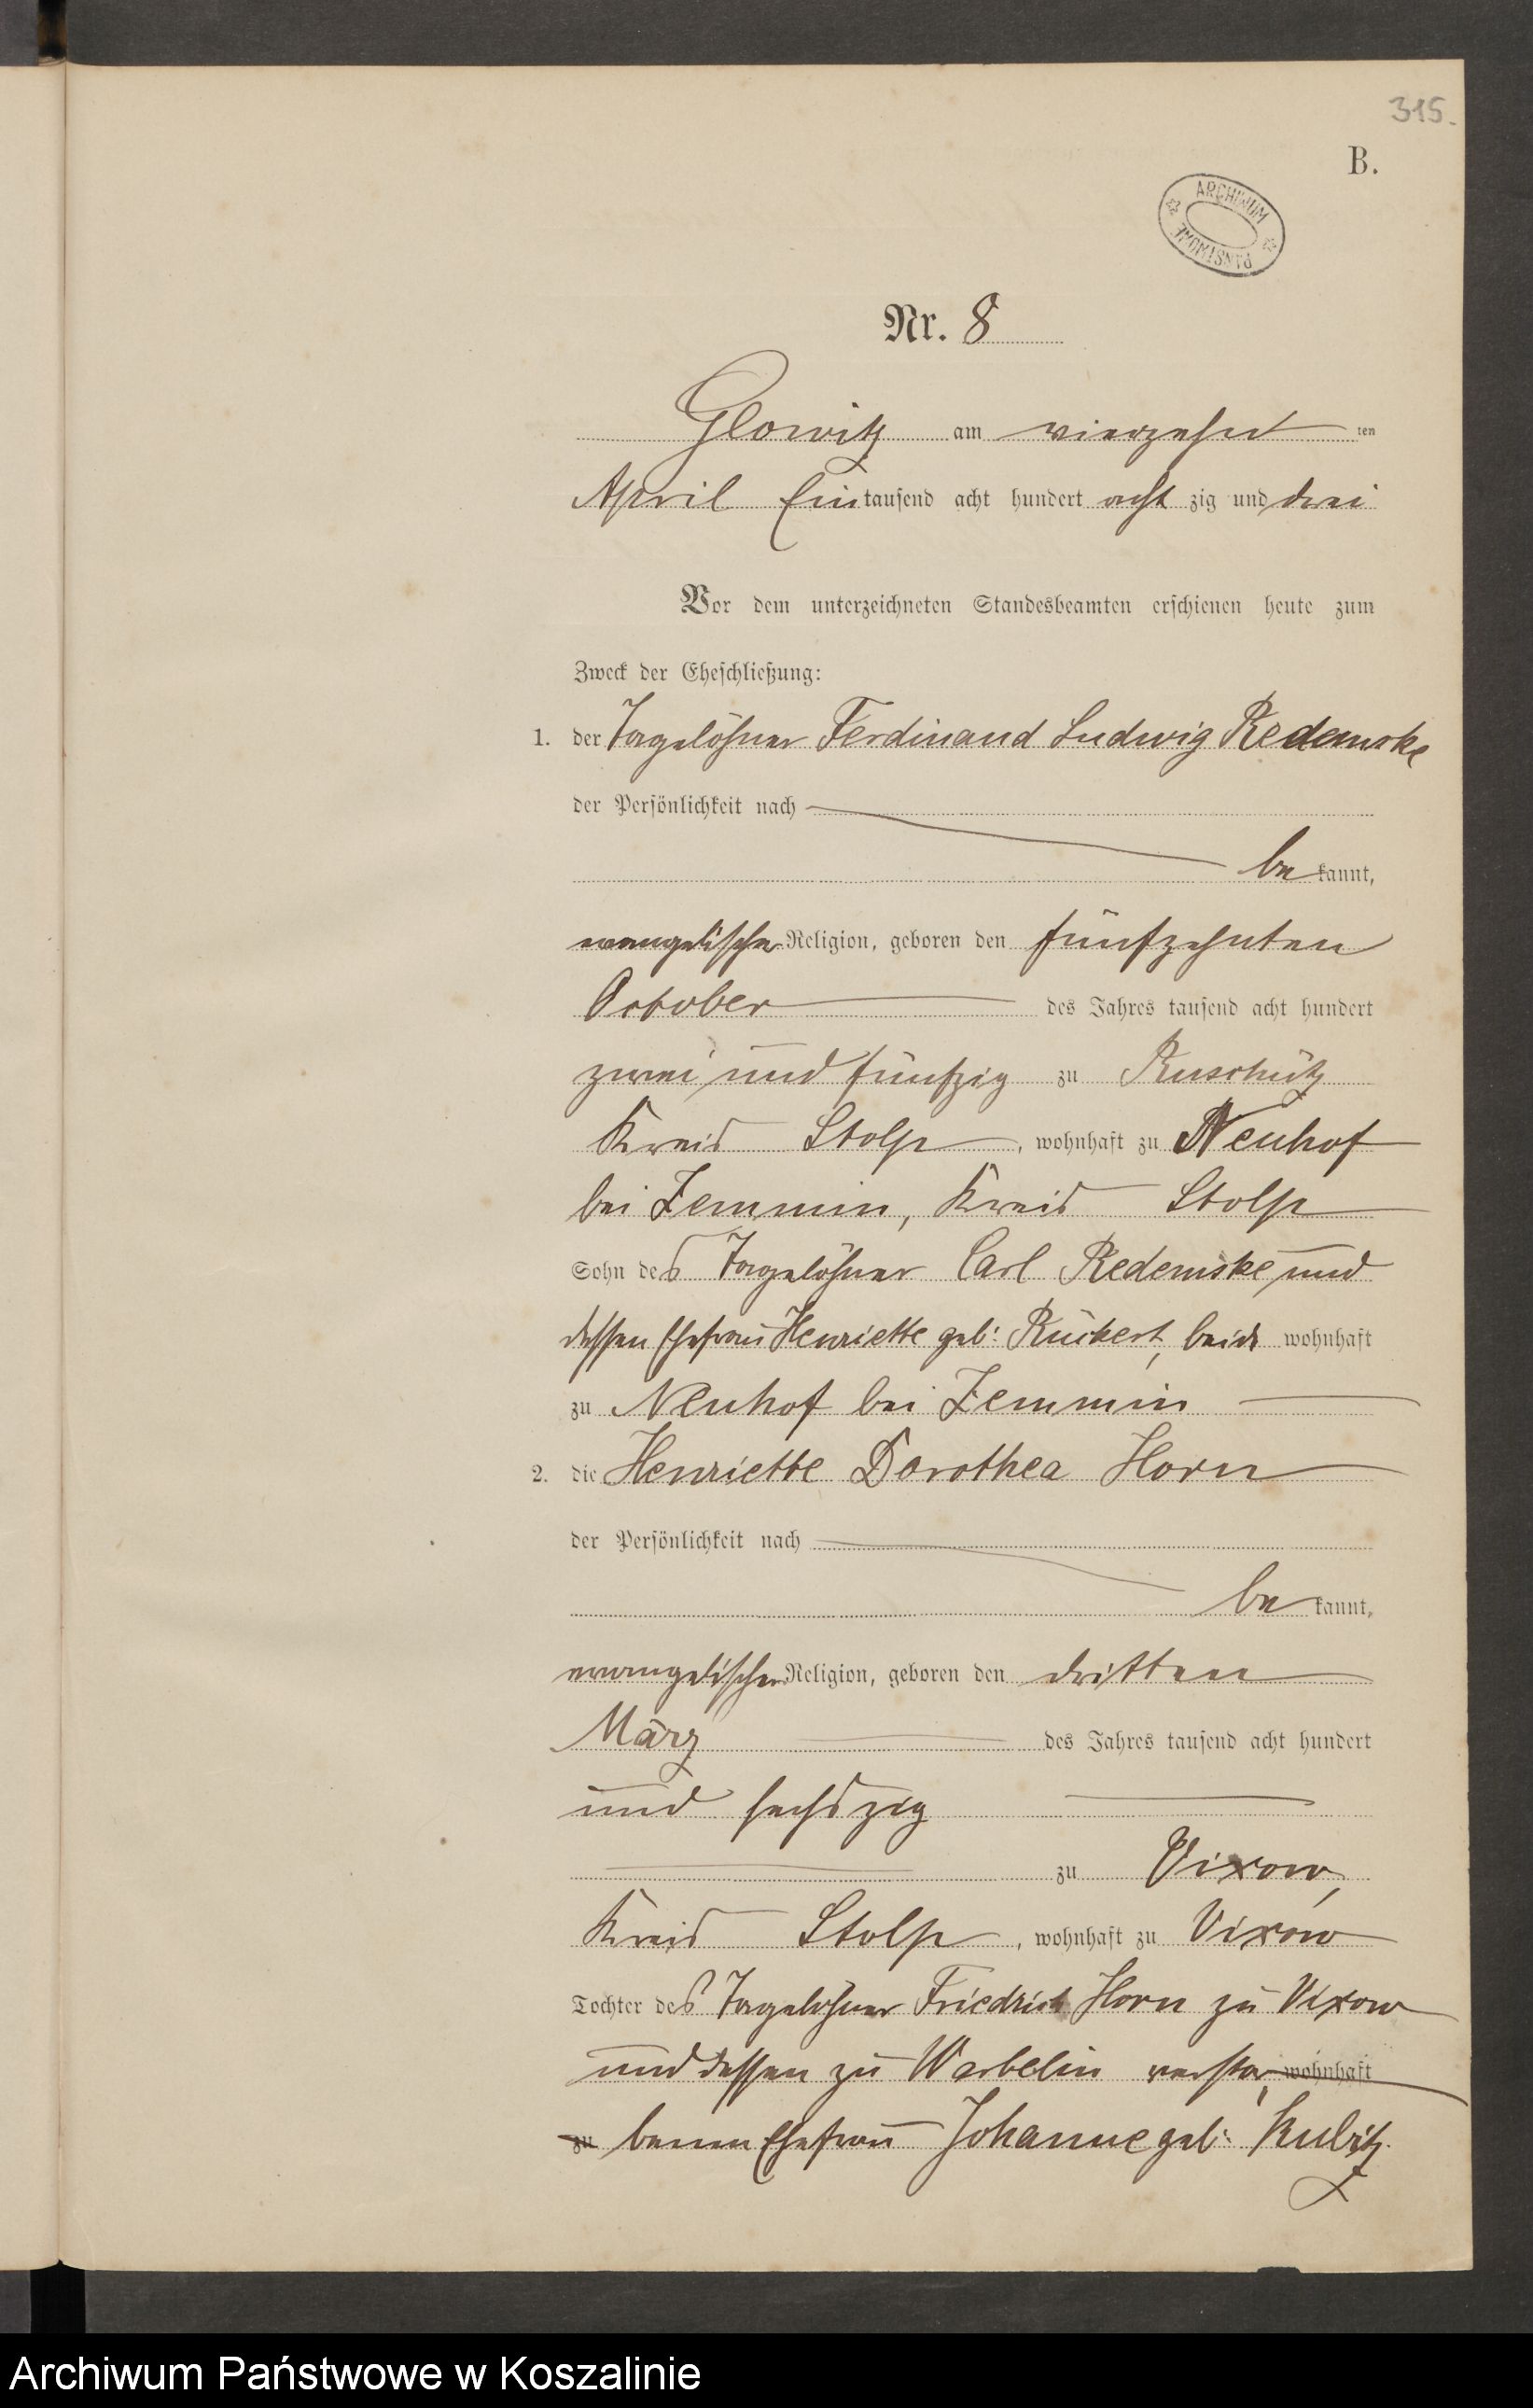 315.
B.
ARCHIWUM
PAŃSTWOWE
Nr. 8
Glowitz am vierzehnten
April Eintausend acht hundert achtzig und drei
Vor dem unterzeichneten Standesbeamten erschienen heute zum
Zweck der Eheschließung:
1. der Tagelöhner Ferdinand Ludwig Redemske
der Persönlichkeit nach
bekannt,
evangelischer Religion, geboren den fünfzehnten
October des Jahres tausend acht hundert
zwei und fünfzig zu Ruschütz
Kreis Stolp, wohnhaft zu Neuhof
bei Zemmin, Kreis Stolp
Sohn des Tagelöhner Carl Redemske und
dessen Ehefrau Henriette geb: Rückert, beide wohnhaft
zu Neuhof bei Zemmin
2. die Henriette Dorothea Horn
der Persönlichkeit nach
bekannt,
evangelischer Religion, geboren den dritten
März des Jahres tausend acht hundert
und sechszig
zu Vixow,
Kreis Stolp, wohnhaft zu Vixow
Tochter des Tagelöhner Friedrich Horn zu Vixow
und dessen zu Warbelin verstor wohnhaft
zu benen Ehefrau Johanne geb: Kubitz.
Archiwum Państwowe w Koszalinie